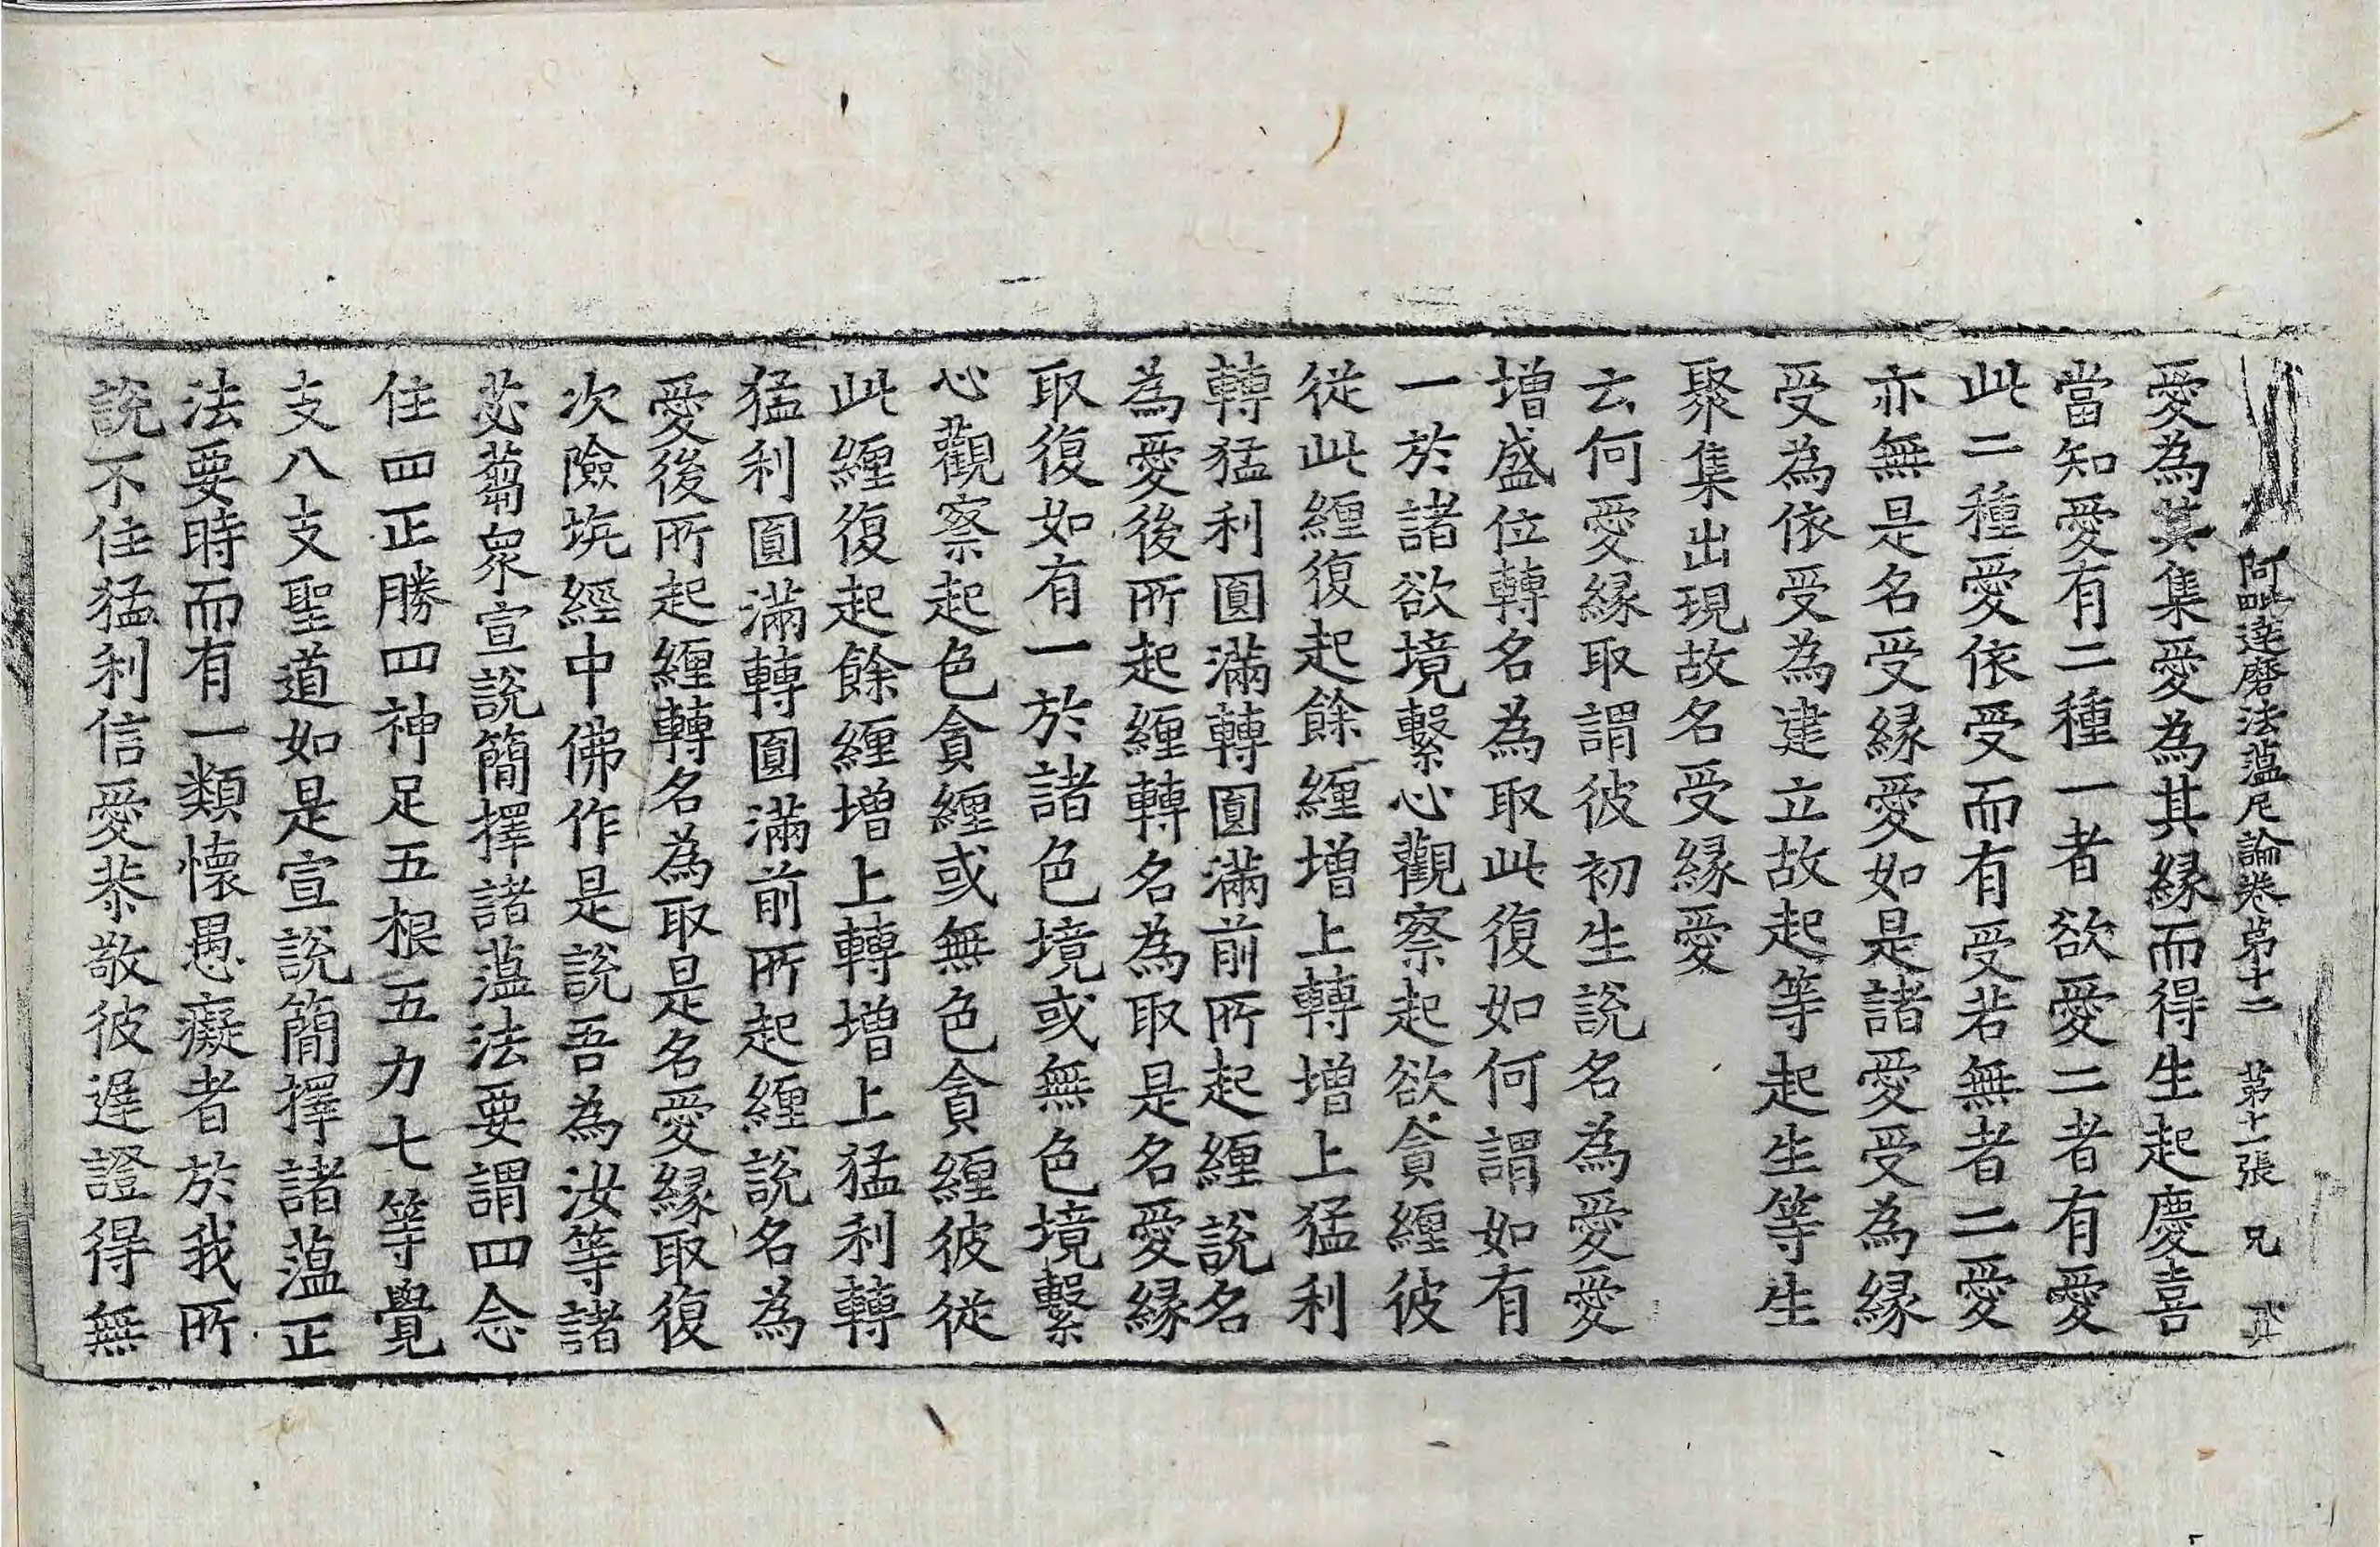 阿毗達磨法蘊足論卷第十二　第十一張　兄
愛為其集愛為其縁而得生起慶喜
當知愛有二種一者欲愛二者有愛
此二種愛依受而有受若無者二愛
亦無是名受縁愛如是諸愛受為縁
受為依受為建立故起等起生等生
聚集出現故名受縁愛
云何愛縁取謂彼初生說名為愛愛
増盛位轉名為取此復如何謂如有
一於諸欲境繫心觀察起欲貪纏彼
從此纏復起餘纏増上轉増上猛利
轉猛利圓滿轉圓滿前所起纏說名
為愛後所起纏轉名為取是名愛縁
取復如有一於諸色境或無色境繫
心觀察起色貪纏或無色貪纏彼從
此纏復起餘纏増上轉増上猛利轉
猛利圓滿轉圓滿前所起纏說名為
愛後所起纏轉名為取是名愛縁取復
次險坑經中佛作是說吾為汝等諸
苾蒭衆宣說簡擇諸蘊法要謂四念
住四正勝四神足五根五力七等覺
支八支聖道如是宣說簡擇諸蘊正
法要時而有一類懷愚癡者於我所
說不住猛利信愛恭敬彼遲證得無